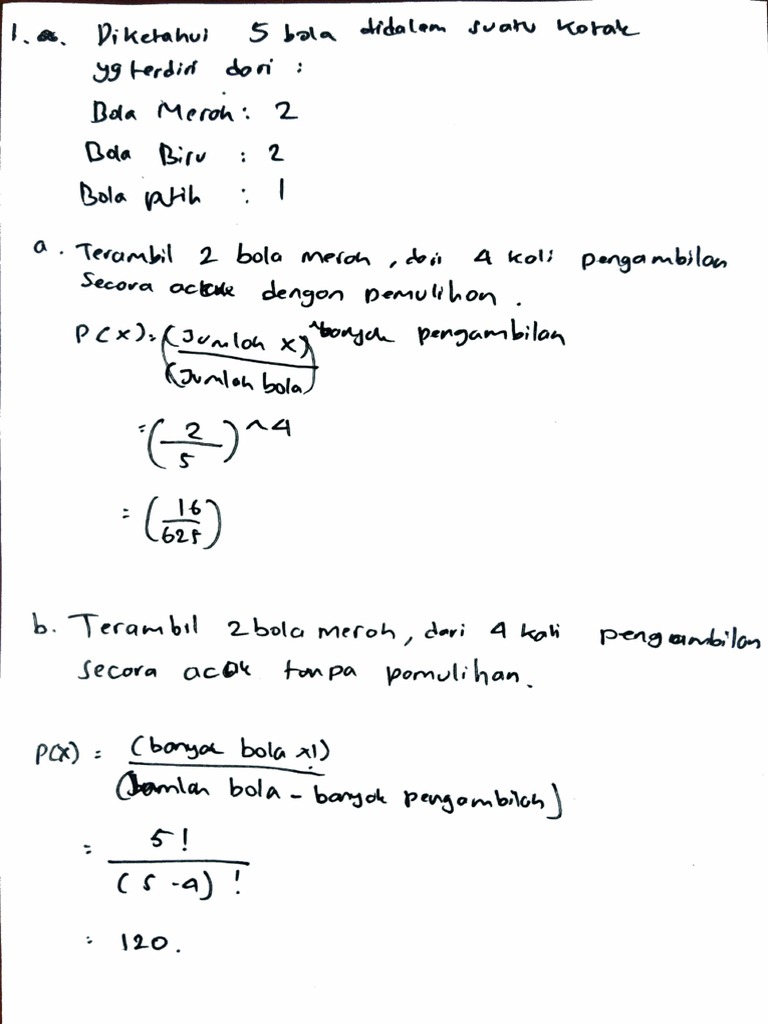 1. a. Diketahui 5 bola didalam suatu kotak
yg terdiri dari :
Bola Merah : 2
Bola Biru : 2
Bola putih : 1
a. Terambil 2 bola merah, dari 4 kali pengambilan
Secara acak dengan pemulihan.
P(X) = (Jumlah X) ^banyak pengambilan
(Jumlah bola)
= (2/5)^4
= (16/625)
b. Terambil 2 bola merah, dari 4 kali pengambilan
secara acak tanpa pomulihan.
P(X) = (banyak bola x!)
(Jumlah bola - banyak pengambilan)
= 5!
(5-4)!
= 120.